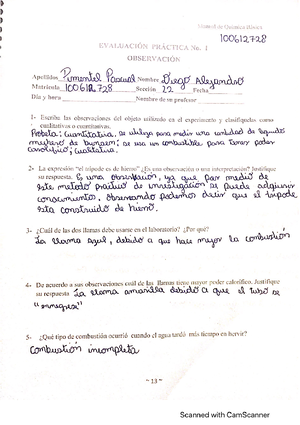 Manual de Química Básica
100612728
EVALUACIÓN PRÁCTICA No. 1
OBSERVACIÓN
Apellidos Pimentel Pascual Nombre Diego Alejandro
Matrícula 100612728 Sección 22 Fecha
Día y hora Nombre de su profesor
1- Escriba las observaciones del objeto utilizado en el experimento y clasifíquelas como
cualitativas o cuantitativas.
Probeta: Cuantitativa, se utiliza para medir una cantidad de liquido
mechero de bunzen: se usa un combustible para tener poder
calorifico; cualitativa.
2- La expresión "el trípode es de hierro" ¿Es una observación o una interpretación? Justifique
su respuesta. Es una observacion, ya que por medio de
este metodo practico de investigacion se puede adquirir
conocimientos, observando podemos decir que el tripode
esta construido de hierro.
3- ¿Cuál de las dos llamas debe usarse en el laboratorio? ¿Por qué?
La llama azul, debido a que hace mejor la combustión
4- De acuerdo a sus observaciones cuál de las llamas tiene mayor poder calorífico. Justifique
su respuesta La llama amarilla debido a que el tubo se
"ennegrece"
5- ¿Qué tipo de combustión ocurrió cuando el agua tardó más tiempo en hervir?
Combustión incompleta
~ 13 ~
Scanned with CamScanner